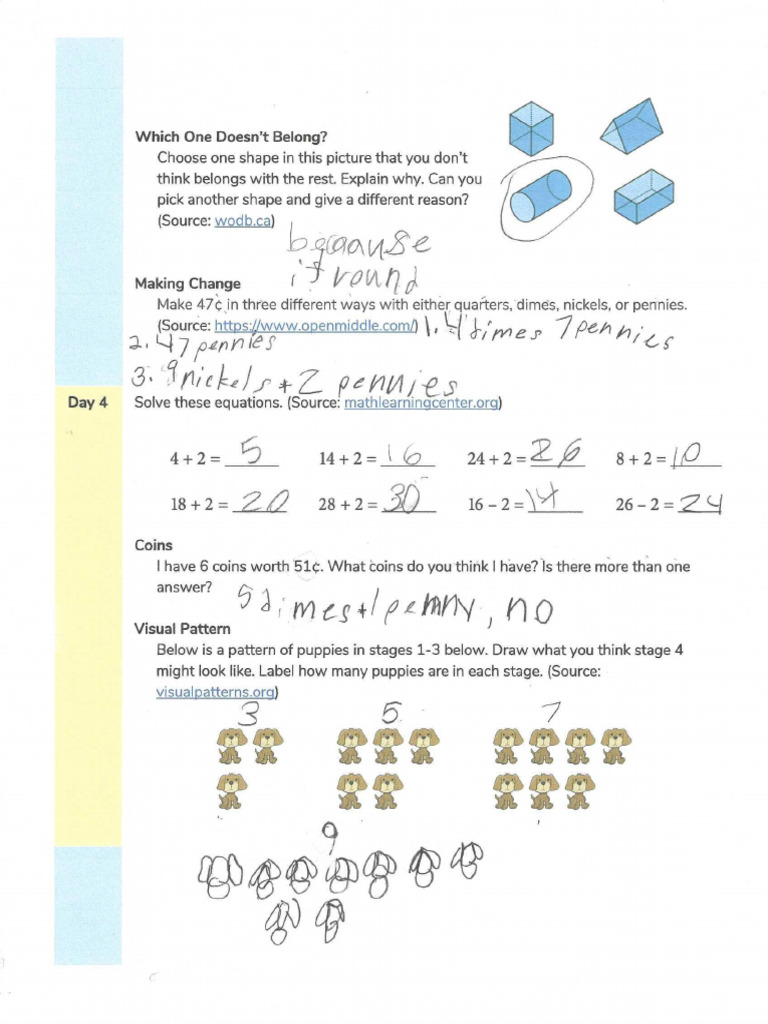 Which One Doesn't Belong?
Choose one shape in this picture that you don't
think belongs with the rest. Explain why. Can you
pick another shape and give a different reason?
(Source: wodb.ca)
becaause
it round
Making Change
Make 47¢ in three different ways with either quarters, dimes, nickels, or pennies.
(Source: https://www.openmiddle.com/) 1. 4 dimes 7 pennies
2. 47 pennies
3. 9 nickels + 2 pennies
Day 4 Solve these equations. (Source: mathlearningcenter.org)
4 + 2 = 5 14 + 2 = 16 24 + 2 = 26 8 + 2 = 10
18 + 2 = 20 28 + 2 = 30 16 – 2 = 14 26 – 2 = 24
Coins
I have 6 coins worth 51¢. What coins do you think I have? Is there more than one
answer?
5 dimes + 1 penny, no
Visual Pattern
Below is a pattern of puppies in stages 1-3 below. Draw what you think stage 4
might look like. Label how many puppies are in each stage. (Source:
visualpatterns.org)
3 5 7
9